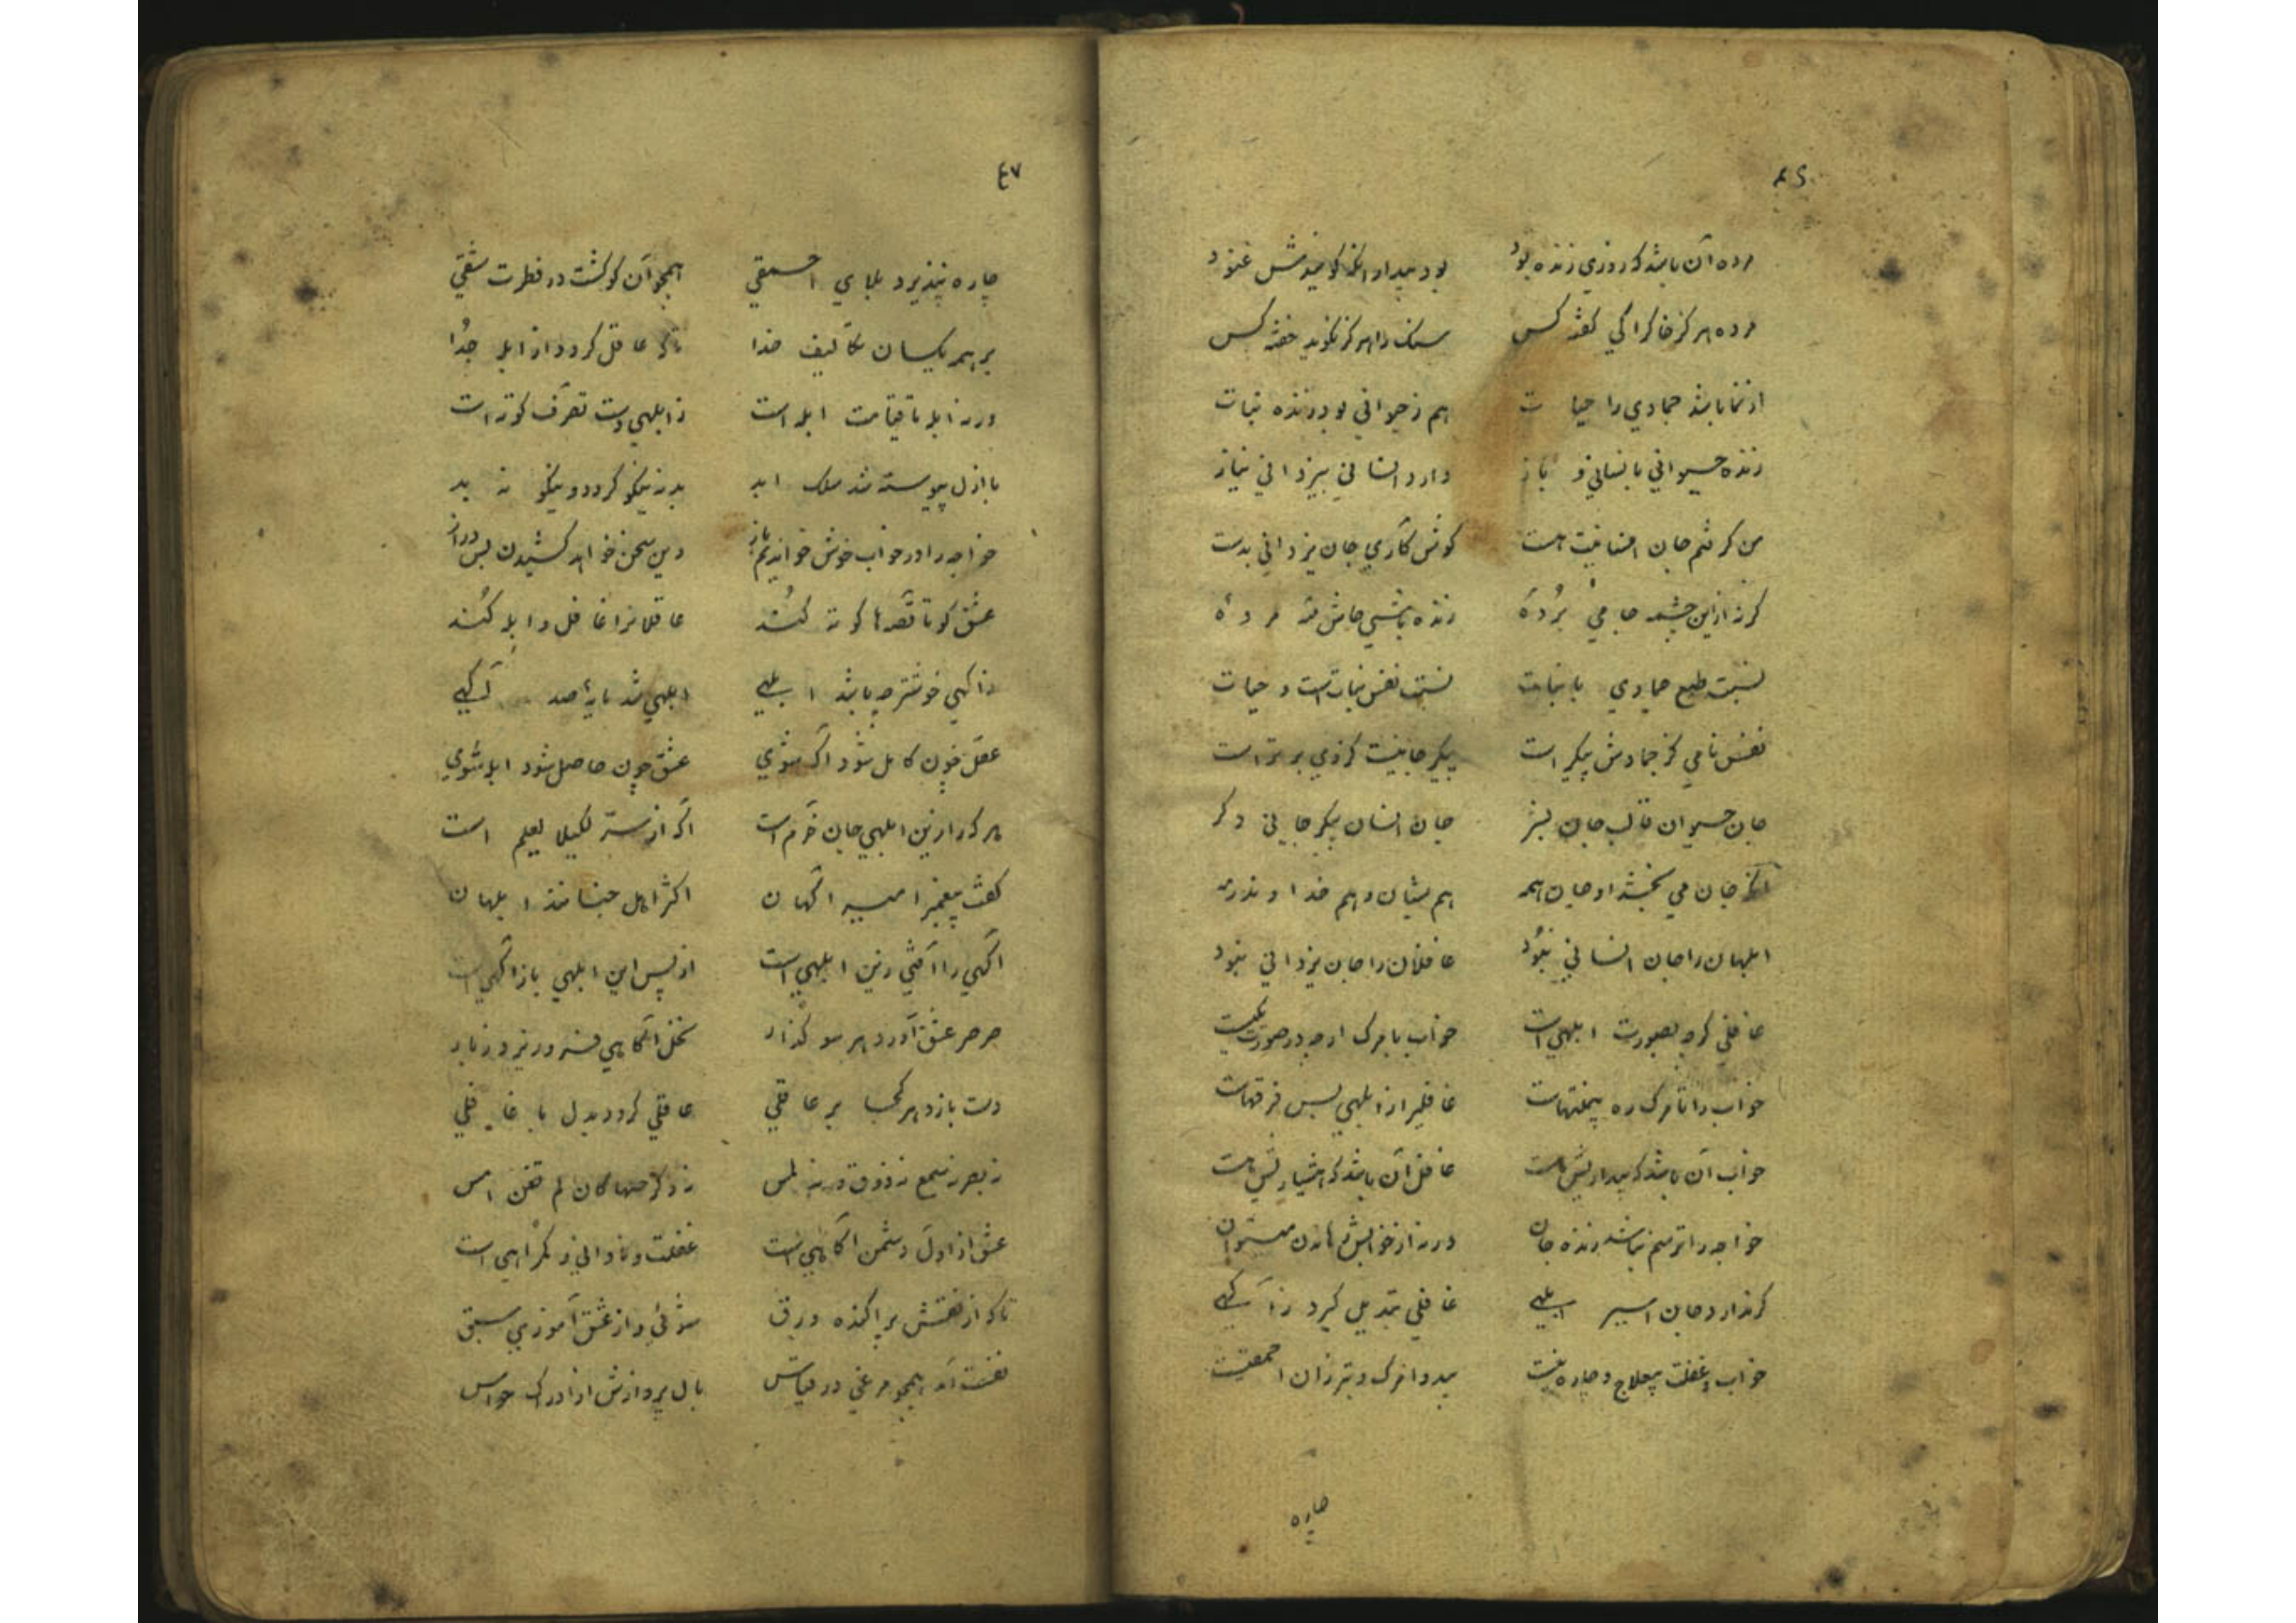 مرده آن باشد که روزی زنده بود بود بیدار آنکه گویندش غنود
مرده هرگز خاک را کی گفته کس سنگ را هرگز نگوید خفته کس
از نما باشد جمادی را حیات هم ز حیوانی بود زنده نبات
زنده حیوانی بانسانی و باز دارد انسانی بیزدانی نیاز
من گرفتم جان انسانیت هست کوش کاری جان یزدانی بدست
گر نه ازین چشمه جامی برده زنده باشی جانش نه مرده
نسبت طبع جمادی با نبات نسبت نفس نباتست و حیات
نفس نامی کز جمادش پیکر است پیکر جانیست کز وی برتر است
جان حیوان قالب جان بشر جان انسان پیکر جانی دگر
آنکه جان می بخشد او جان همه هم شبان و هم خداوند رمه
ابلهان را جان انسانی نبود غافلان را جان یزدانی نبود
غافلی گرچه بصورت ابلهی است خواب با مرگ ارچه در صورت یکیست
خواب را تا مرگ ره بینهاست غافلی را ز ابلهی بس فرقهاست
خواب آن باشد که بیداریش هست غافل آن باشد که هشیاریش هست
خواجه را ترسم نباشد زنده جان ورنه از خوابش رماندن میتوان
گر ندارد جان اسیر ابلهی غافلی تبدیل گیرد ز آگهی
خواب و غفلت بیعلاج و چاره نیست بیدوا مرگ و بتر زان احمقیست
چاره
٤٧
چاره نپذیرد بلای احمقی همچو آن کو گشت در فطرت شقی
بر همه یکسان تکالیف خدا تا که عاقل گردد از ابله جدا
ورنه ابله تا قیامت ابله است ز ابلهی دست تصرف کوته است
با ازل پیوسته شد ملک ابد بد نه نیکو گردد و نیکو نه بد
خواجه را در خواب خوش خواندیم باز وین سخن خواهد کشیدن بس دراز
عشق کو تا قصه ها کوته کند عاقلانرا غافل و ابله کند
ز آگهی خوشتر چه باشد ابلهی ابلهی شد مایه صد آگهی
عقل چون کامل شود آگه شوی عشق چون حاصل شود ابله شوی
هر که را زین ابلهی جان خرم است آگه از سر لکیلا یعلم است
گفت پیغمبر امیر آگهان اکثر اهل جنانند ابلهان
آگهی را آفتی زین ابلهی است از پس این ابلهی باز آگهی است
صرصر عشق آورد هر سو گذار نخل آگاهی فرو ریزد ز بار
دست یازد هر کجا بر عاقلی عاقلی گردد بدل با غافلی
نه بصر نه سمع نه ذوق و نه لمس نه ذکر حسها کان لم تغن امس
عشق از اول دشمن آگاهی است غفلت و نادانی و گمراهی است
تا که از نقش پراکنده ورق شوئی و از عشق آموزی سبق
نفست آمد همچو مرغی در قیاس بال پروازش از ادراک حواس